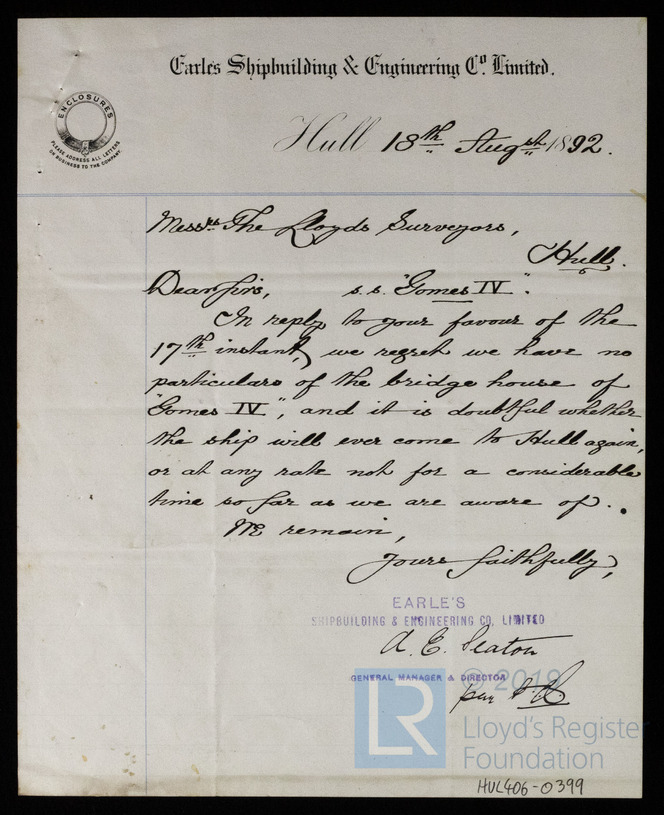 Earles Shipbuilding & Engineering Co. Limited.
ENCLOSURES
PLEASE ADDRESS ALL LETTERS
ON BUSINESS TO THE COMPANY.
Hull 18th Augst 1892.
Messrs The Lloyds Surveyors,
Hull.
Dear Sirs, s.s. "Gomes IV".
In reply to your favour of the
17th instant, we regret we have no
particulars of the bridge house of
"Gomes IV", and it is doubtful whether
the ship will ever come to Hull again,
or at any rate not for a considerable
time so far as we are aware of.
We remain,
Yours faithfully,
EARLE'S
SHIPBUILDING & ENGINEERING CO. LIMITED
A. E. Seaton
GENERAL MANAGER & DIRECTOR
per
© 2019
LR
Lloyd's Register
Foundation
HUL406-0399